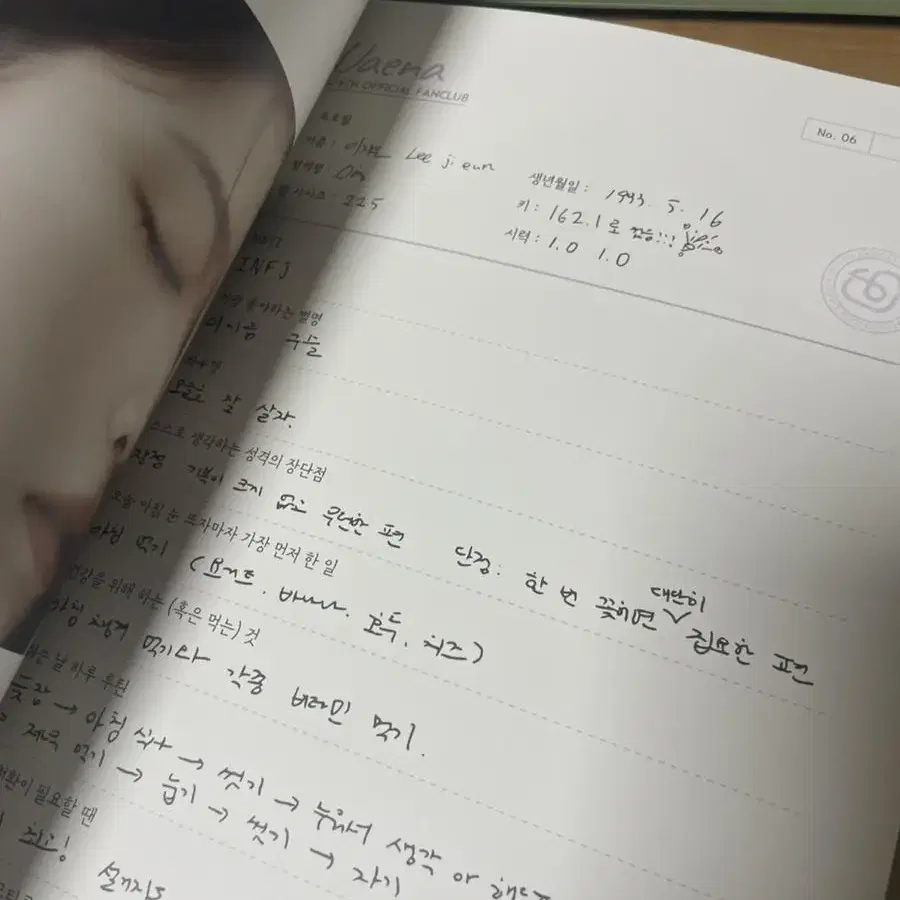 Uaena
OFFICIAL FANCLUB
No. 06
프로필
이름 : 이지은 Lee ji eun
생년월일 : 1993. 5. 16
혈액형 :
키 : 162.1로
사이즈 : 225
시력 : 1.0 1.0
MBTI
INFJ
가장 좋아하는 별명
이지금
오늘도 잘 살자.
스스로 생각하는 성격의 장단점
장점 기복이 크지 않고 무던한 편 단점 : 한 번 꽂히면 대단히 집요한 편
오늘 아침 눈 뜨자마자 가장 먼저 한 일
아침 먹기 (요거트, 바나나, 호두, 치즈)
건강을 위해 하는 (혹은 먹는) 것
아침 챙겨 먹기와 각종 비타민 먹기.
쉬는 날 하루 루틴
→ 아침 식사 → 씻기 → 누워서 생각 or
먹기 → 눕기 → 씻기 → 자기
전환이 필요할 땐
최고! 설거지도